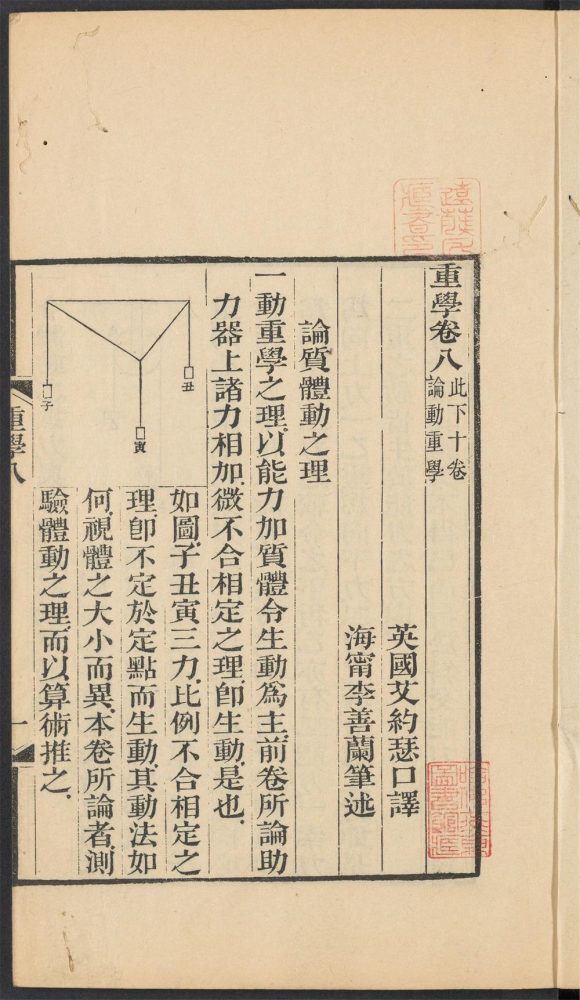 重學卷八 此下十卷
論動重學
英國艾約瑟口譯
海甯李善蘭筆述
論質體動之理
一動重學之理以能力加質體令生動爲主前卷所論助
力器上諸力相加微不合相定之理卽生動是也
如圖子丑寅三力比例不合相定之
理卽不定於定點而生動其動法如
何視體之大小而異本卷所論者測
驗體動之理而以算術推之
丑
寅
子
重學八
一